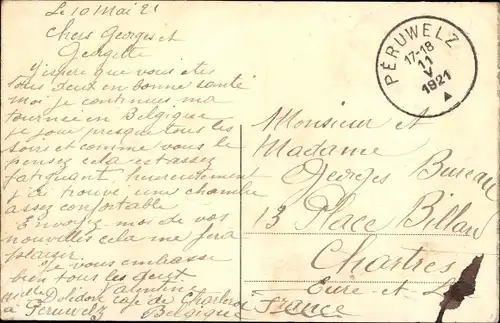 Le 10 Mai 21
Chers Georges et
Georgette
J'espere que vous etes
tous deux en bonne santé
moi je continues ma
tournée en Belgique
je joue presque tous les
soirs et comme vous le
pensez cela est assez
fatiguant, heureusement
j'ai trouvé une chambre
assez confortable
Envoyez-moi de vos
nouvelles cela me fera
plaisir
Je vous embrasse
bien tous les deux
Valentine
café de Charleroi
a Peruwelz Belgique
PÉRUWELZ
17-18
11
V
1921
Monsieur et
Madame
Georges Bureau
13 Place Billard
Chartres
Eure et L
France